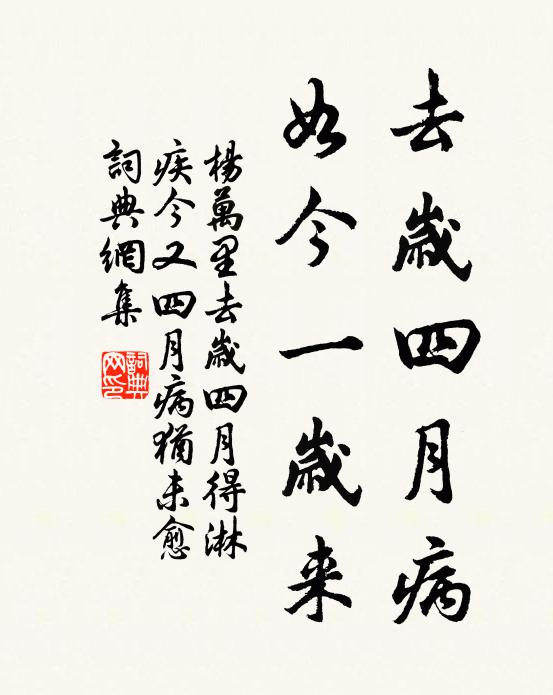 去歲四月病
如今一歲来
楊萬里去歲四月得淋
疾今又四月病猶未愈
詞典網集
詞典
网印